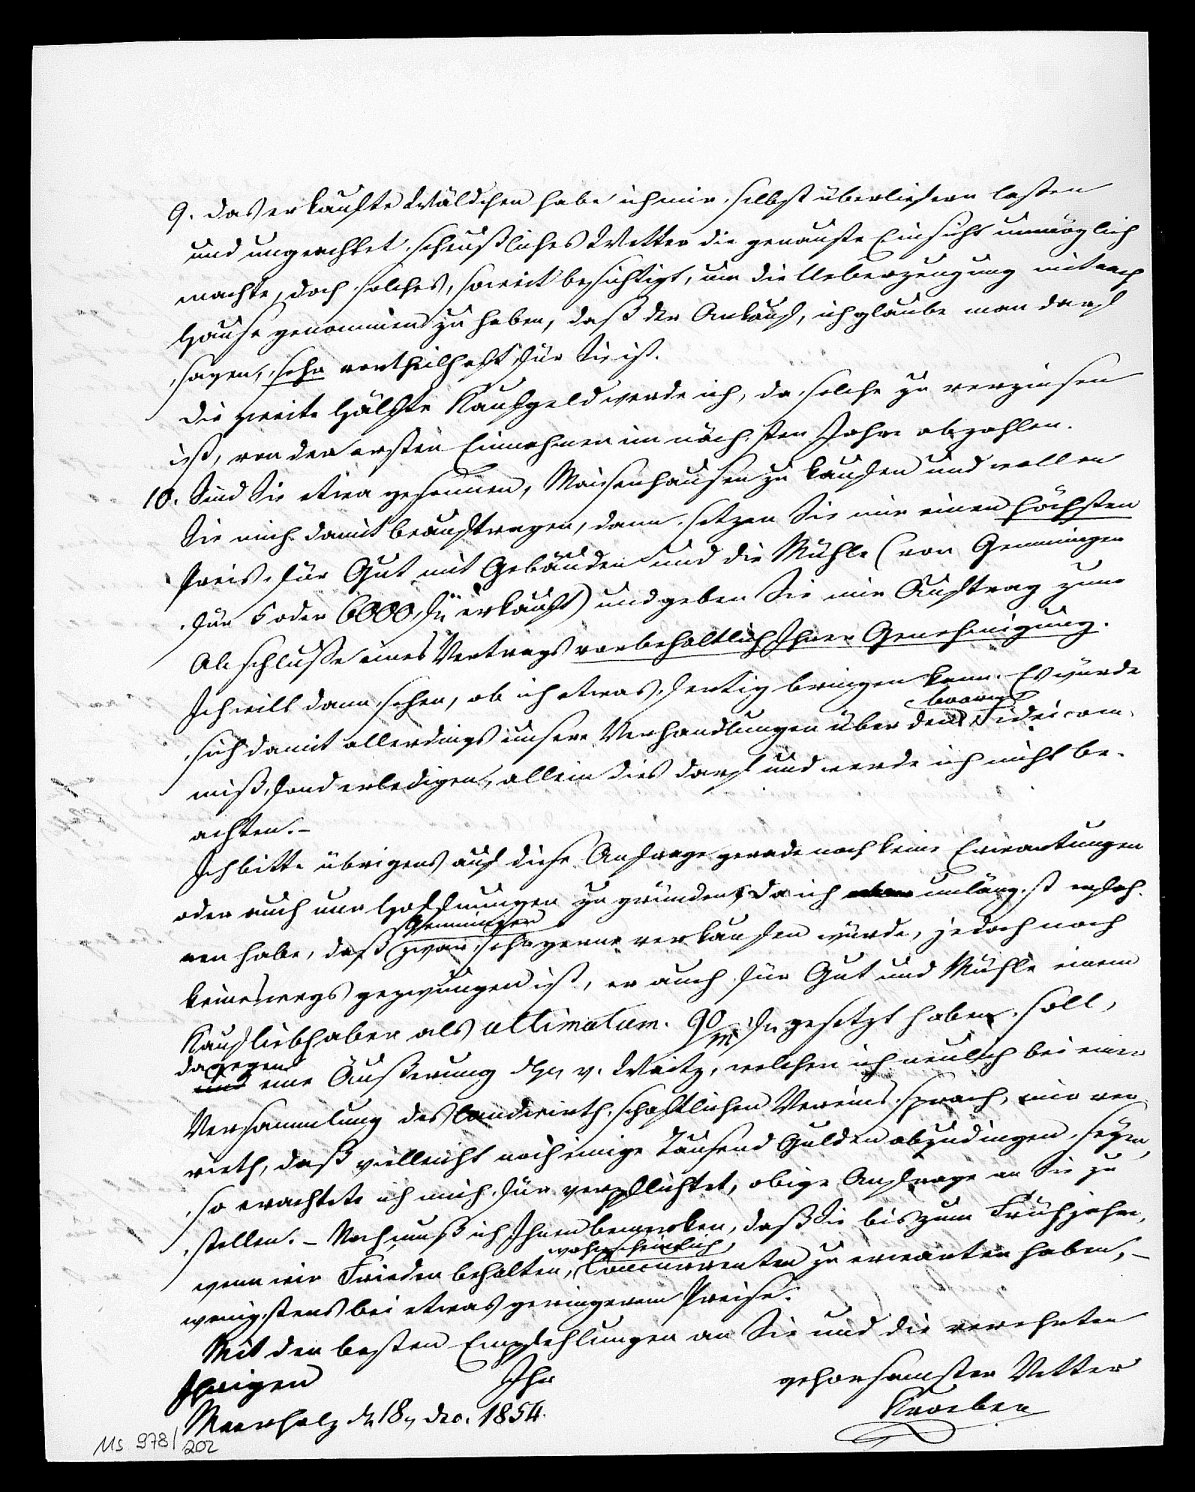 9. das erkaufte Wäldchen habe ich mir selbst überliefern lassen
und ungeachtet scheußliches Wetter die genauste Einsicht unmöglich
machte, doch solches, soweit besichtigt, um die Ueberzeugung mit nach
Hause genommen zu haben, daß der Ankauf, ich glaube man darf
sagen, sehr vortheilhaft für Sie ist.
Die zweite Hälfte Kaufgeld werde ich, da solche zu verzinsen
ist, von den ersten Einnahmen im nächsten Jahre abzahlen.
10. Sind Sie etwa gesonnen, Maisenhausen zu kaufen und wollen
Sie mich damit beauftragen, dann setzen Sie mir einen höchsten
Preis für Gut mit Gebäuden und die Mühle (von Gemmingen
für 5 oder 6000 fl erkauft) und geben Sie mir Auftrag zum
Abschlusse eines Vertrags vorbehaltlich Ihrer Genehmigung.
Ich will dann sehen, ob ich etwas fertig bringen kann. Es würde
sich damit allerdings unsere Verhandlungen über den Fideicom-
miß fond erledigen, allein dies darf und werde ich nicht be-
achten.–
Ich bitte übrigens auf diese Anfrage gerade noch keine Erwartungen
oder auch nur Hoffnungen zu gründen, da ich unlängst erfah-
ren habe, daß Gemmingen zwar sehr gerne verkaufen würde, jedoch noch
keineswegs gezwungen ist, er auch für Gut und Mühle einem
Kaufliebhaber als ultimatum. 90/m fl gesetzt haben soll,
dagegen eine Äußerung des H. v. Waitz, welchen ich neulich bei einer
Versammlung des landwirthschaftlichen Vereins sprach, mir ver-
rieth, daß vielleicht noch einige Tausend Gulden abzudingen seyen,
so erachtete ich mich für verpflichtet, obige Anfrage an Sie zu
stellen. – Noch muß ich Ihnen bemerken, daß Sie bis zum Frühjahre,
wenn wir Frieden behalten, wahrscheinlich Concurrenten zu erwarten haben, –
wenigstens bei etwas geringerem Preise.
Mit den besten Empfehlungen an Sie und die verehrten
Ihrigen Ihr gehorsamster Vetter
Meerholz d. 18. Dec. 1854.
Ms 978/202